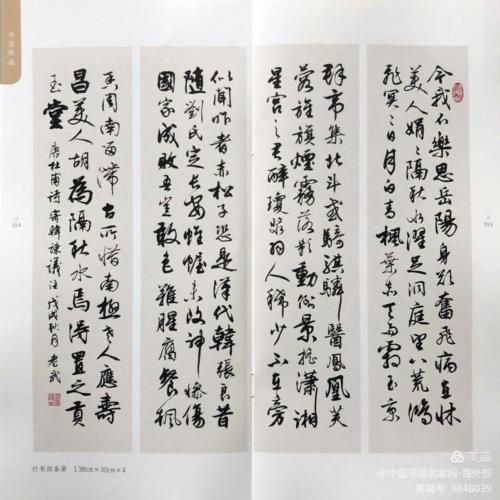 书法作品
今我不樂思岳陽身欲奮飛病在床
美人娟〻隔秋水濯足洞庭望八荒鴻
飛冥〻日月白青楓葉赤天雨霜玉京
群帝集北斗或騎騏驎翳鳳凰芙
蓉旌旗煙霧落影動倒景搖瀟湘
星宮之君醉瓊漿羽人稀少不在旁
似聞昨者赤松子恐是漢代韓張良昔
隨劉氏定長安帷幄未改神慘傷
國家成敗吾豈敢色難腥腐餐楓
香周南留滯古所惜南極老人應壽
昌美人胡為隔秋水焉得置之貢
玉堂 唐杜甫詩寄韓諫議注 戊戌秋月 老武
014
015
行书四条屏 138cm×30cm×4
美篇
@中国书画名家网·海外部
美篇号: 9848039